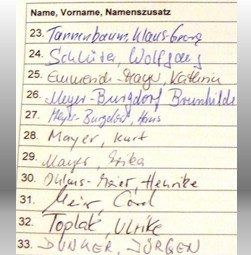 Name, Vorname, Namenszusatz
23. Tannenbaum, Klaus-Georg
24. Schlüter, Wolfgang
25. Katharina
26. Meyer-Burgdorf Brunhilde
27. Meyer-Burgdorf, Hans
28. Mayer, Kurt
29. Mayer, Erika
30. Henrike
31. Meir, Carol
32. Toplak, Ulrike
33. DUNKER, JÜRGEN